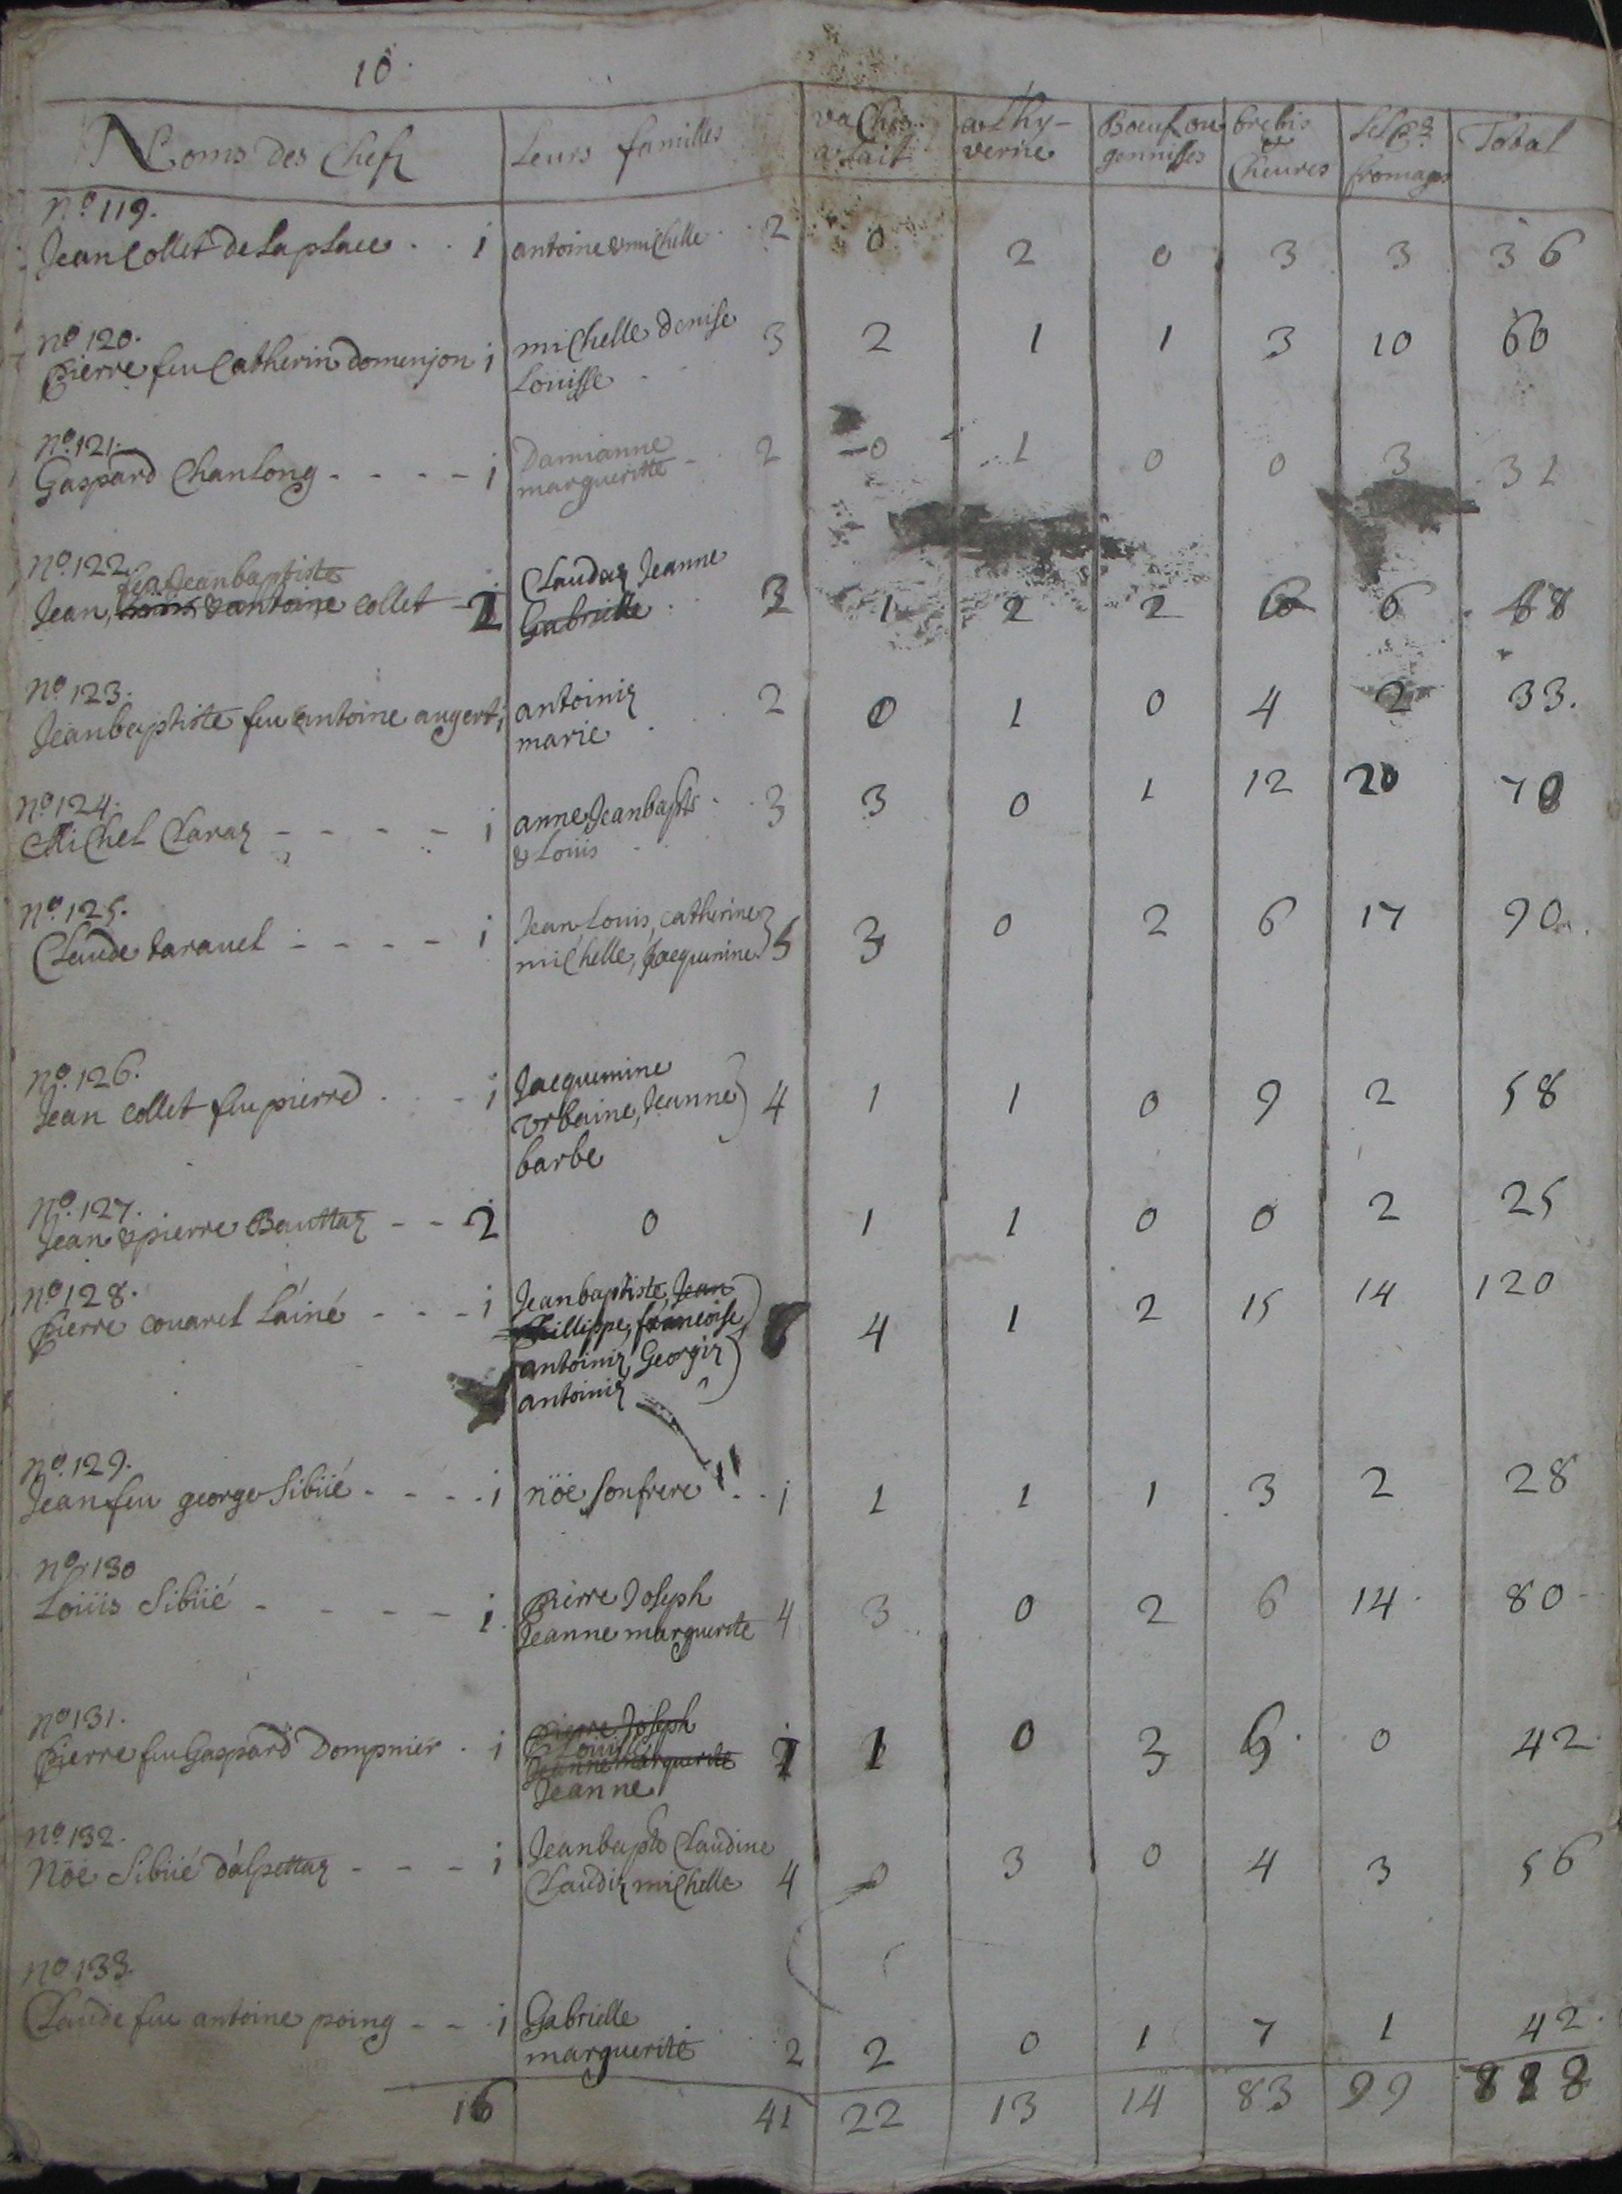 10.
Noms des Chefz | Leurs familles | vaches a Lait | a L'hyverne | Boeuf ou gennisses | brebis & Cheures | fromages | Total
No. 119.
Jean Collet de la place . . 1 | antoine & michelle . . 2 | 0 | 2 | 0 | 3 | 3 | 36
No. 120.
Pierre feu Catherin domenjon 1 | michelle denise 3 | 2 | 1 | 1 | 3 | 10 | 60
Loüisse - -
No. 121.
Gaspard Chanlong - - - - 1 | Damianne 2 | 0 | 1 | 0 | 0 | 3 | 31
margueritte - .
No. 122.
Jeanbaptiste
Jean, & antoine collet - 2 | Claudaz Jeanne
Gabrielle . 3 | 1 | 2 | 2 | 6 | 6 | 68
No. 123.
Jeanbaptiste feu antoine augert 1 | antoiniz 2 | 0 | 1 | 0 | 4 | 2 | 33.
marie .
No. 124.
Michel Claraz - - - - 1 | anne Jeanbapte . . 3 | 3 | 0 | 1 | 12 | 20 | 78
& Loüis -
No. 125.
Claude taravel - - - - 1 | Jean Louis, catherine
michelle, Jacquemine 5 | 3 | 0 | 2 | 6 | 17 | 90.
No. 126.
Jean collet feu pierre . . - 1 | Jacquemine
Urbaine, Jeanne 4 | 1 | 1 | 0 | 9 | 2 | 58
barbe
No. 127.
Jean & pierre Bauttaz - - 2 | 0 | 1 | 1 | 0 | 0 | 2 | 25
No. 128.
Pierre couarel L'ainé - - - 1 | Jeanbaptiste, Jean
Phillippe, françoise, | 4 | 1 | 2 | 15 | 14 | 120
antoiniz, Georgiz
antoiniz
No. 129.
Jean feu george Sibüé - - - 1 | nöe son frere . . 1 | 1 | 1 | 1 | 3 | 2 | 28
No. 130
Loüis Sibüé - - - - 1 | Pierre Joseph
Jeanne marguerite 4 | 3 | 0 | 2 | 6 | 14 | 80
No 131.
Pierre feu Gaspard Dompnier . 1 | Pierre Joseph
Louis
Jeanne marguerite 1 | 1 | 0 | 3 | 5 | 0 | 42
Jeanne
No. 132.
Nöe Sibüé d'alpettaz - - - 1 | Jeanbapte Claudine
Claudiz michelle 4 | 0 | 3 | 0 | 4 | 3 | 56
No 133.
Claude feu antoine poing - - 1 | Gabrielle
marguerite 2 | 2 | 0 | 1 | 7 | 1 | 42.
16 | 41 | 22 | 13 | 14 | 83 | 99 | 888